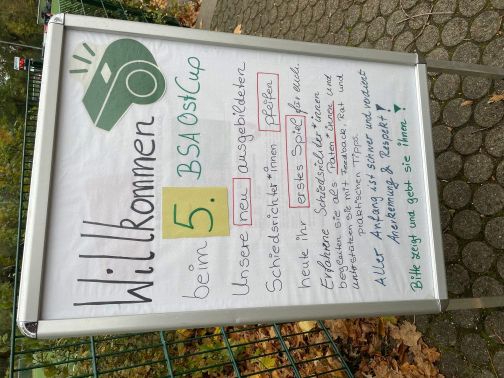 Willkommen
beim 5. BSA OstCup
Unsere neu ausgebildeten
Schiedsrichter*innen pfeifen
heute ihr erstes Spiel für euch.
Erfahrene Schiedsrichter*innen
begleiten sie als Paten*innen und
unterstützen sie mit Feedback, Rat und
praktischen Tipps.
Aller Anfang ist schwer und verdient
Anerkennung & Respekt!
Bitte zeigt und gebt sie ihnen!